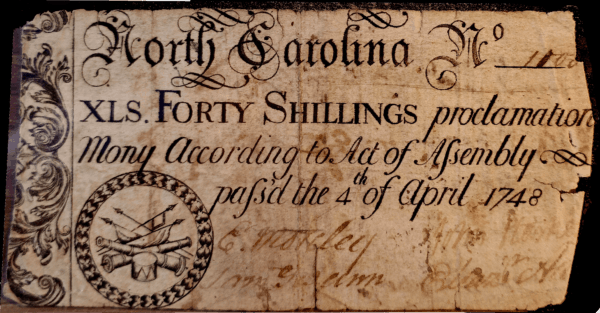 North Carolina No
XLS. FORTY SHILLINGS proclamation
Mony According to Act of Assembly
pass'd the 4th of April 1748
E. Moseley